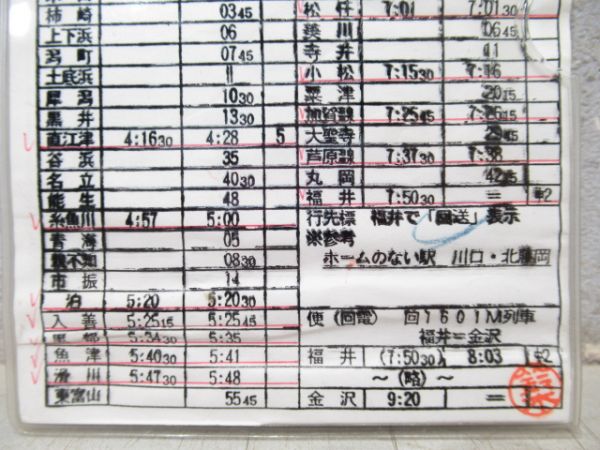 柿崎 03 45
上下浜 06
潟町 07 45
土底浜 11
犀潟 10 30
黒井 13 30
直江津 4:16 30 4:28 5
谷浜 35
名立 40 30
能生 48
糸魚川 4:57 5:00
青海 05
親不知 08 30
市振 14
泊 5:20 5:20 30
入善 5:25 15 5:25 45
黒部 5:34 30 5:35
魚津 5:40 30 5:41
滑川 5:47 30 5:48
東富山 55 45
松任 7:01 7:01 30
06 45
寺井 11
小松 7:15 30 7:16
粟津 20 15
加賀線 7:25 45 7:26 15
大聖寺
芦原線 7:37 30 7:38
丸岡 42 15
福井 7:50 30 = 中2
行先標 福井で「回送」表示
※参考
ホームのない駅 川口・北
使(回電) 回1601M列車
福井=金沢
福井 (7:50 30) 8:03 中2
~(略)~
金沢 9:20 =